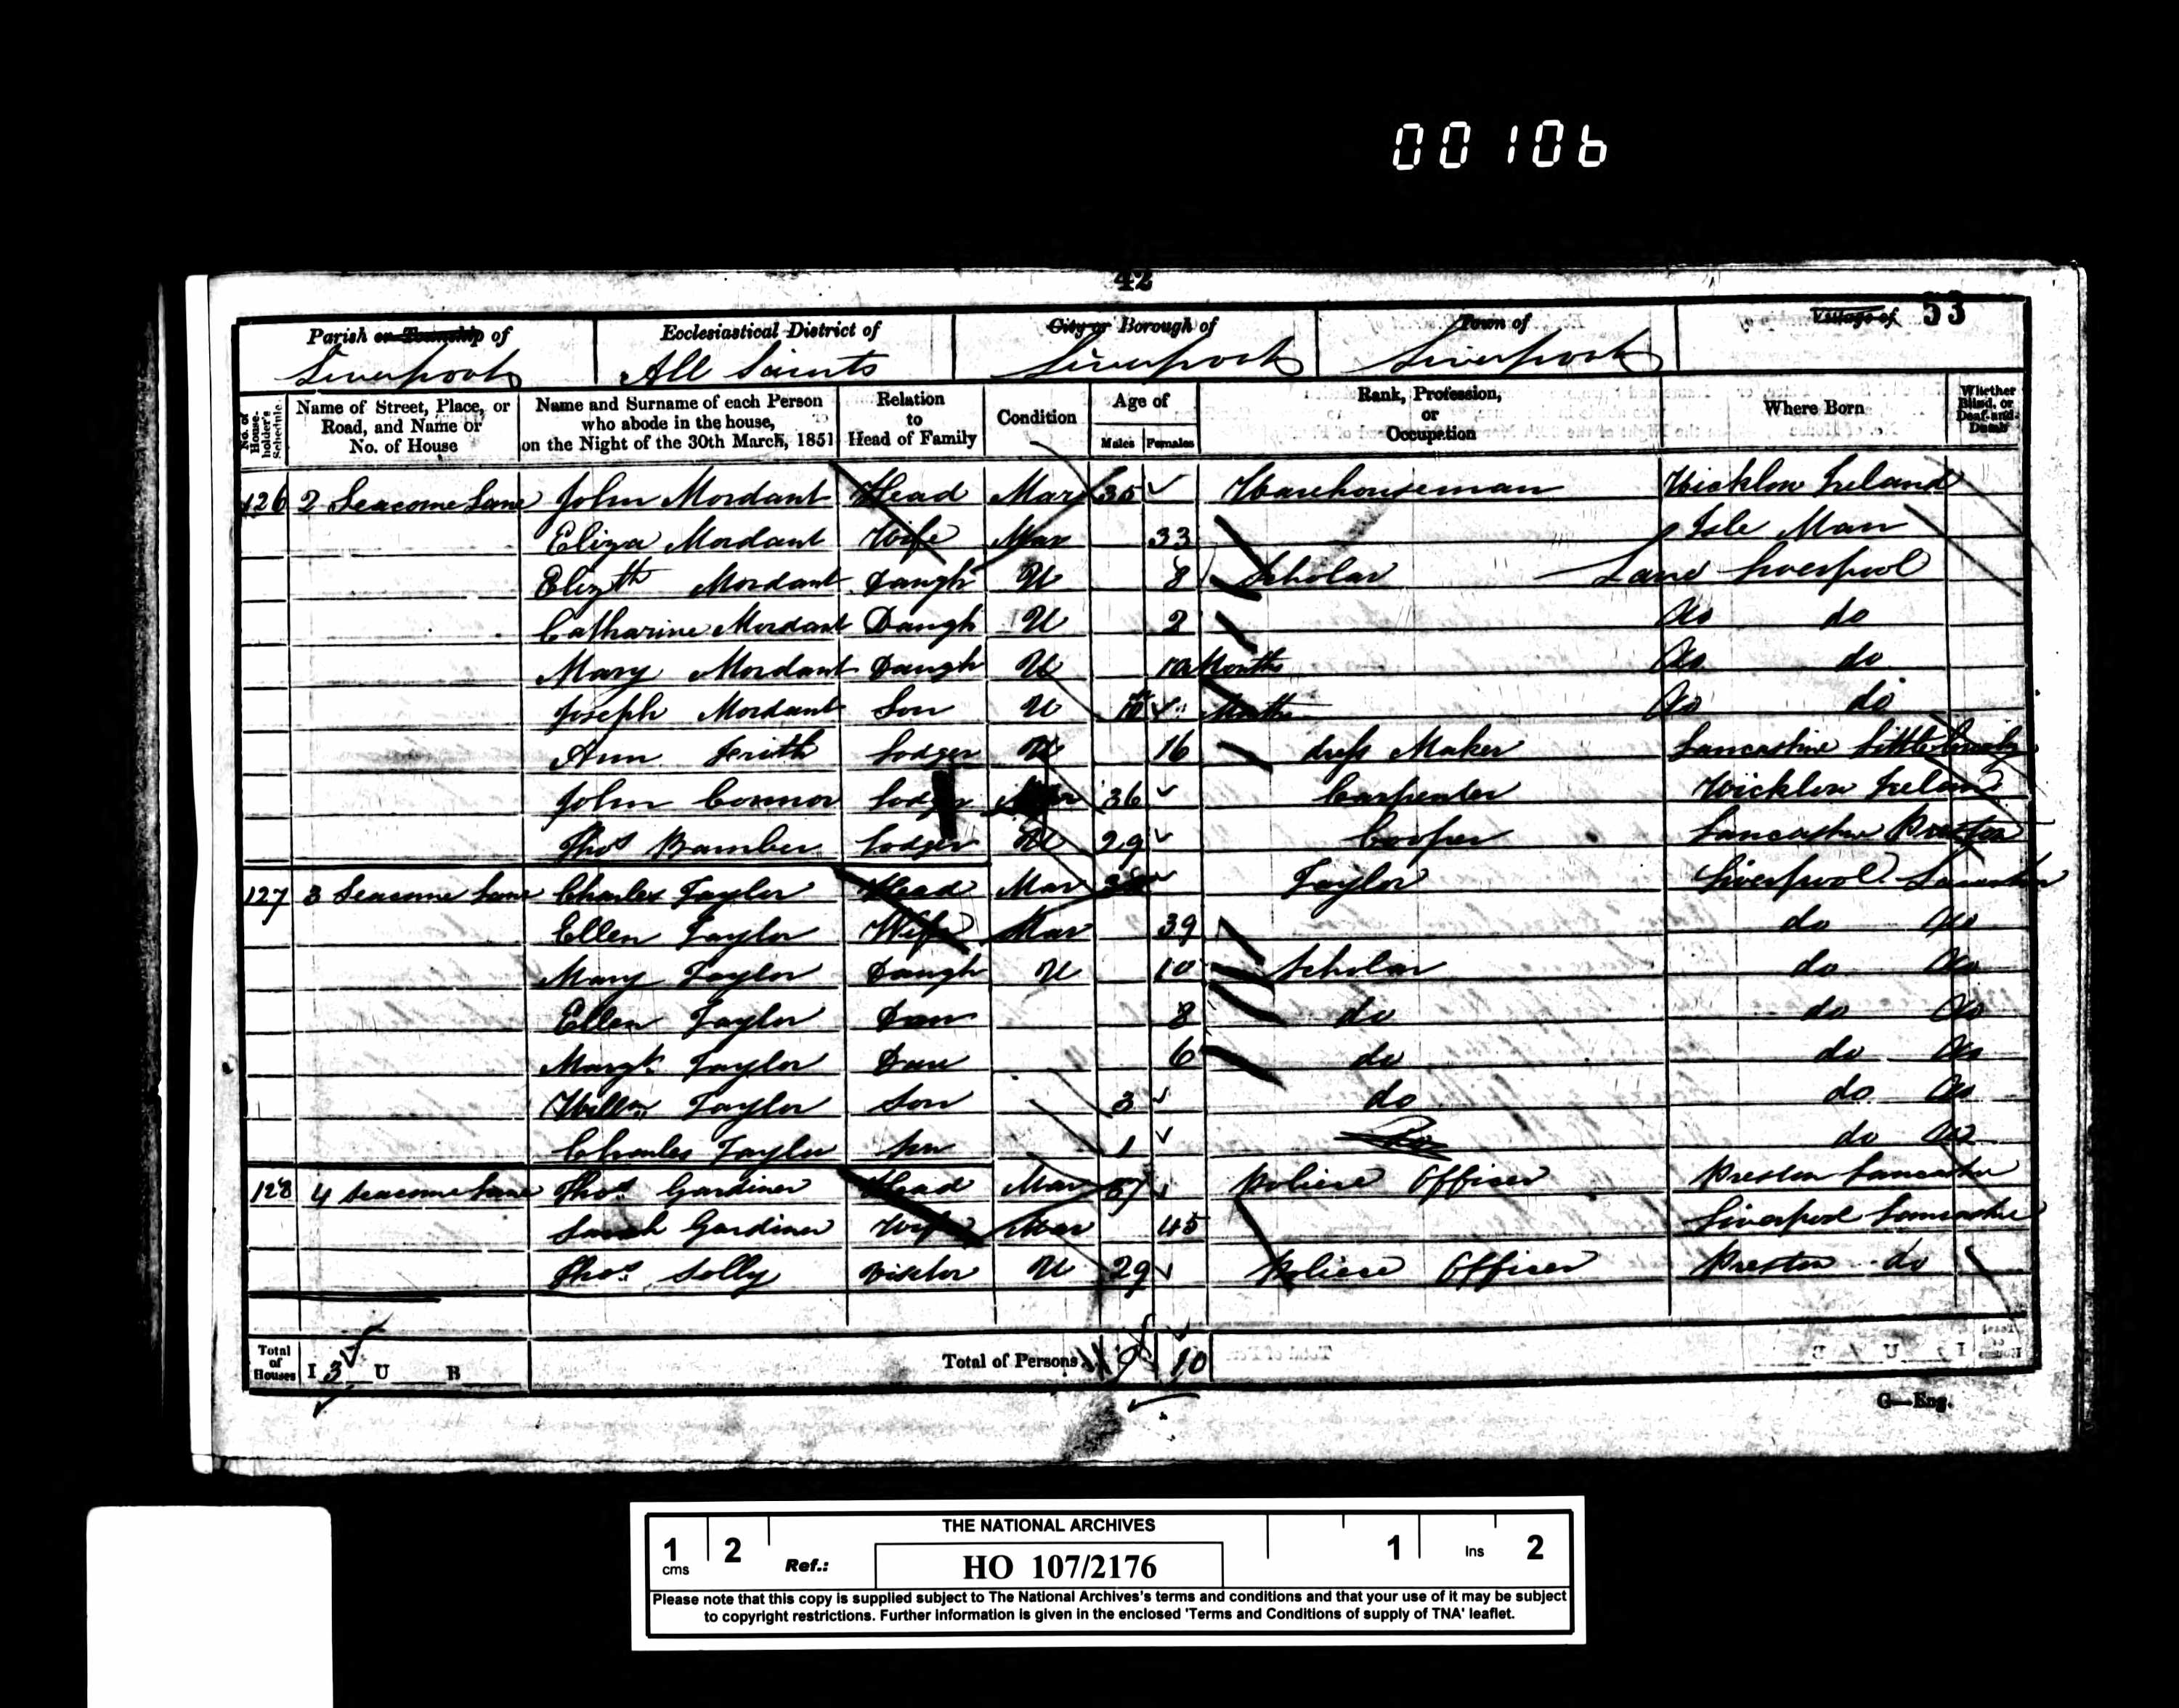 00106
42
53
Parish or Township of Ecclesiastical District of City or Borough of Town of Village of
Liverpool All Saints Liverpool Liverpool
No. of House-holder's Schedule. Name of Street, Place, or Road, and Name or No. of House Name and Surname of each Person who abode in the house, on the Night of the 30th March, 1851 Relation to Head of Family Condition Age of Males Females Rank, Profession, or Occupation Where Born Whether Blind, or Deaf-and-Dumb
126 2 Seacome Lane John Mordant Head Mar 35 Warehouseman Wicklow Ireland
Eliza Mordant Wife Mar 33 Isle Man
Elizth Mordant Daugh U 8 Scholar Lanc Liverpool
Catharine Mordant Daugh U 2 do do
Mary Mordant Daugh U 10 Months do do
Joseph Mordant Son U Months do do
Ann Lodger U 16 dress Maker Lancashire Little Crosby
John Connor Lodger 36 Carpenter Wicklow Ireland
Thos Bamber Lodger U 29 Cooper Lancashire Preston
127 3 Seacome Lane Charles Taylor Head Mar Taylor Liverpool Lancashire
Ellen Taylor Wife Mar 39 do do
Mary Taylor Daugh U 10 Scholar do do
Ellen Taylor Dau 8 do do do
Margt Taylor Dau 6 do do do
Willm Taylor Son 3 do do do
Charles Taylor Son 1 do do do
128 4 Seacome Lane Thos Gardiner Head Mar Poliece Officer Preston Lancashire
Sarah Gardiner Wife Mar 45 Liverpool Lancashire
Thos Solly Visitor U 29 Poliece Officer Preston do
Total of Houses I 3 U B Total of Persons 9 10
G—Eng.
THE NATIONAL ARCHIVES
1 cms 2 Ref.: HO 107/2176 1 Ins 2
Please note that this copy is supplied subject to The National Archives's terms and conditions and that your use of it may be subject
to copyright restrictions. Further information is given in the enclosed 'Terms and Conditions of supply of TNA' leaflet.